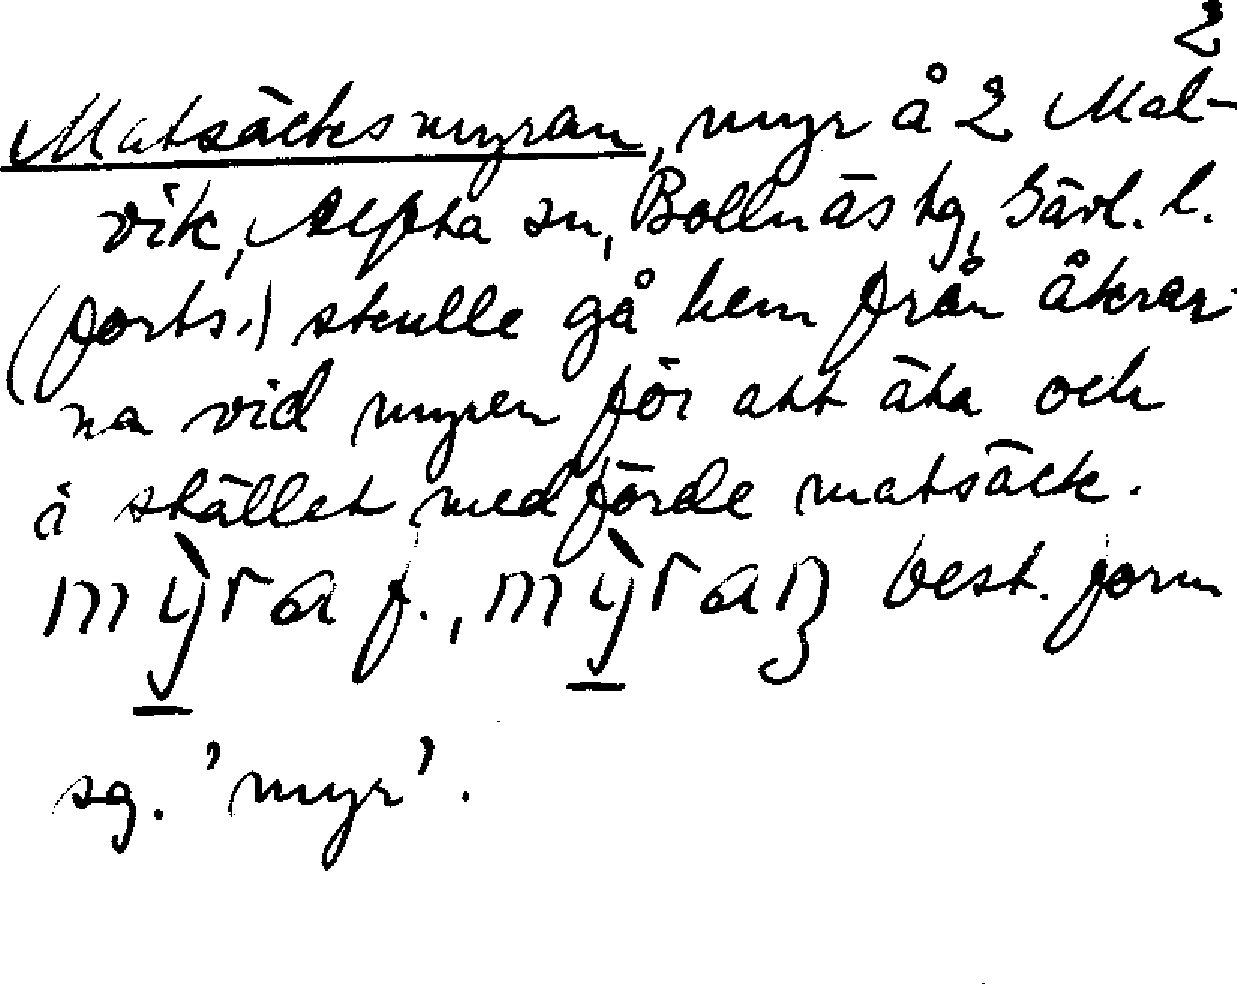 2
Matsäcksmyran, myr å 2 Mal-
vik, Alfta sn, Bollnäs tg, Gävl. l.
(forts.) skulle gå hem från åkrar-
na vid myren för att äta och
i stället medförde matsäck.
mỳ̱ra f., mỳ̱raꞃ best. form
sg. 'myr'.